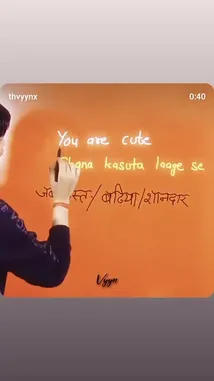 thvyynx 0:40
You are cute
Ghana kasuta laage se
/ बढिया/शानदार
Vyyn